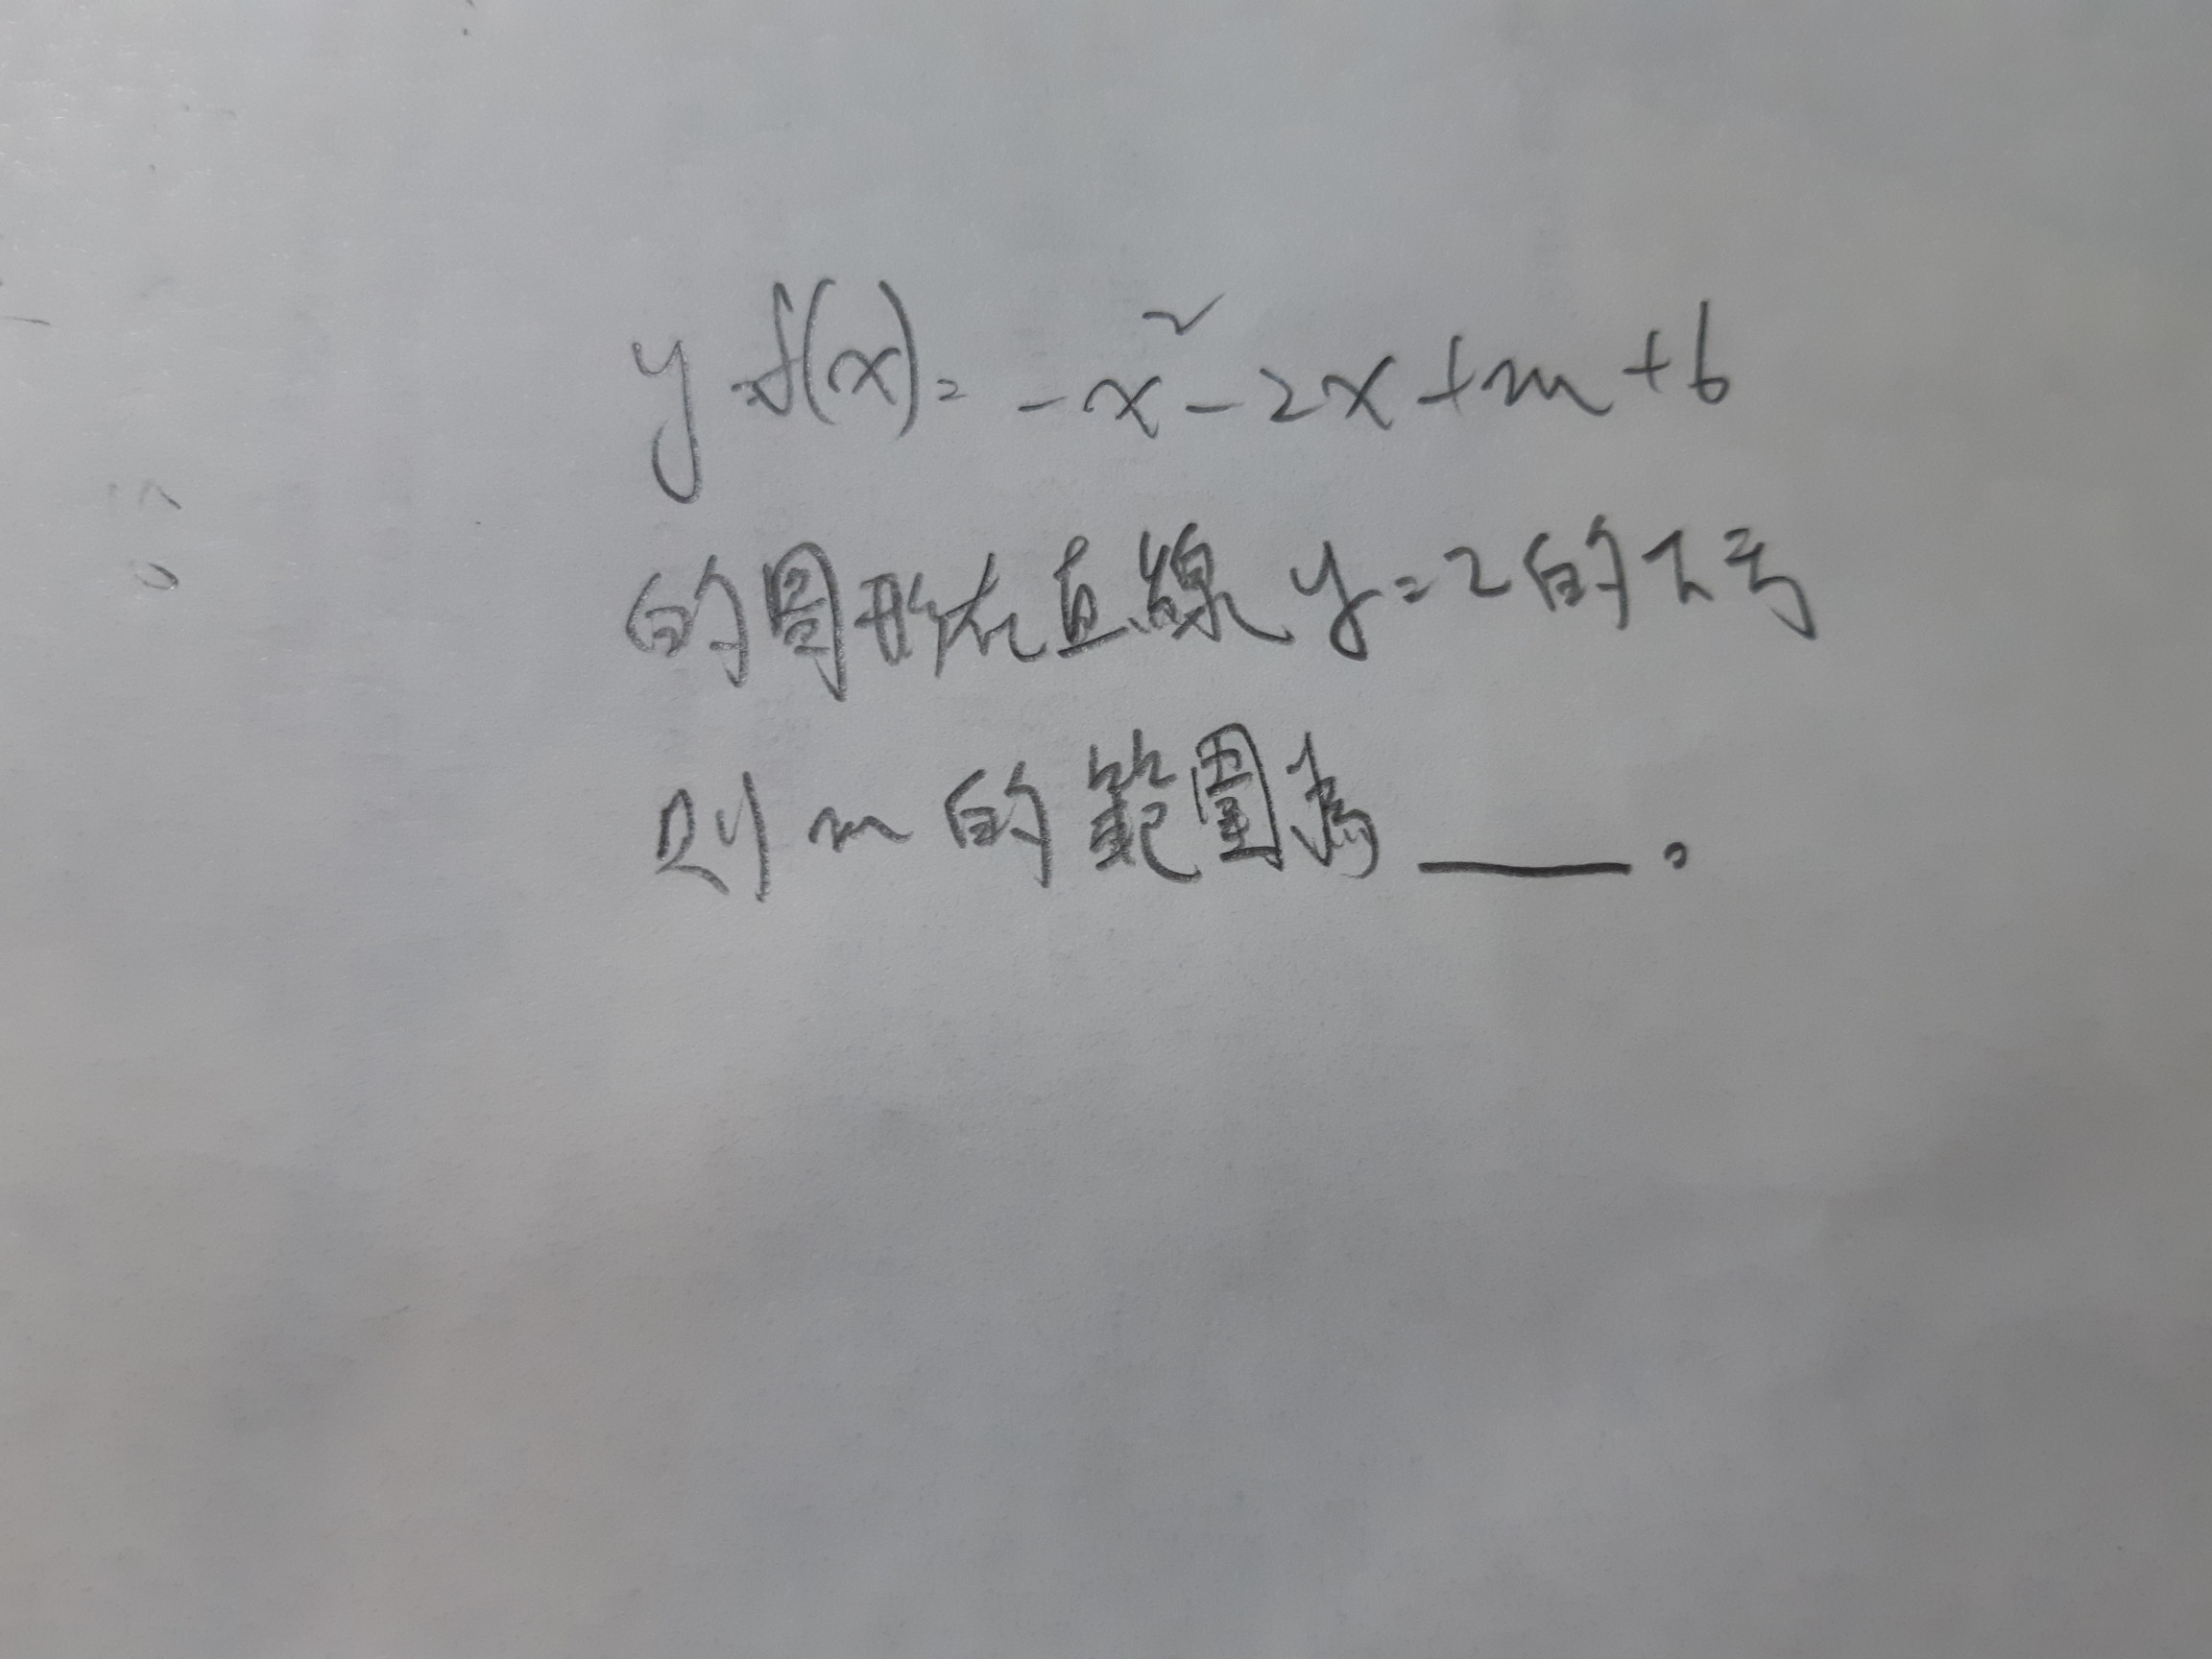 y=f(x)=-x²-2x+m+6
的圖形在直線y=2的下方
則m的範圍為____。